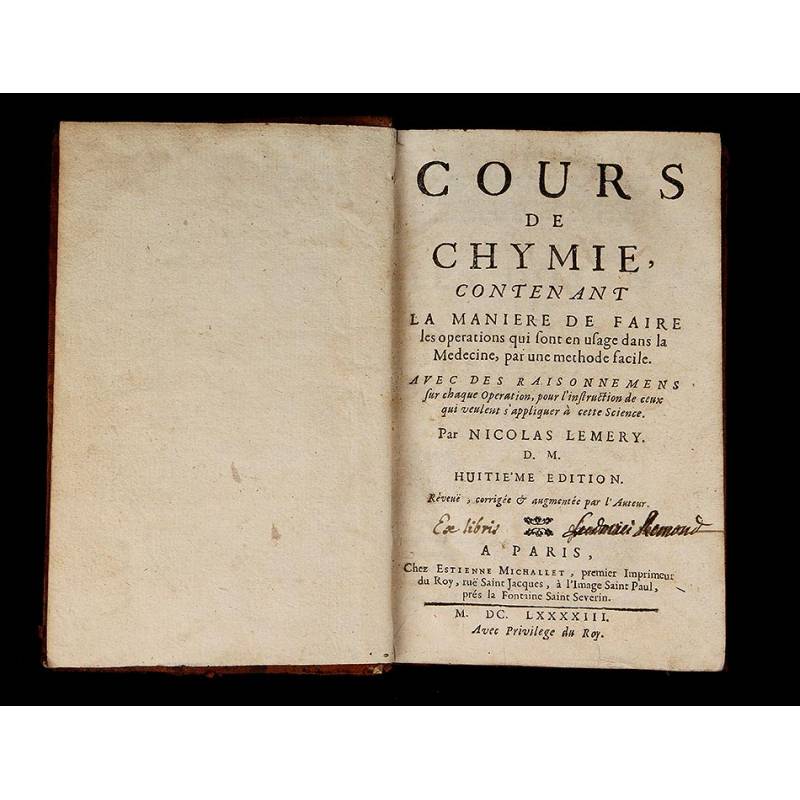 COURS
DE
CHYMIE,
CONTENANT
LA MANIERE DE FAIRE
les operations qui ſont en uſage dans la
Medecine, par une methode facile.
AVEC DES RAISONNEMENS
ſur chaque Operation, pour l'inſtruction de ceux
qui veulent s'appliquer à cette Science.
Par NICOLAS LEMERY.
D. M.
HUITIE'ME EDITION.
Rêveuë, corrigée & augmentée par l'Auteur.
Ex libris Remond
A PARIS,
Chez ESTIENNE MICHALLET, premier Imprimeur
du Roy, ruë Saint Jacques, à l'Image Saint Paul,
prés la Fontaine Saint Severin.
M. DC. LXXXXIII.
Avec Privilege du Roy.